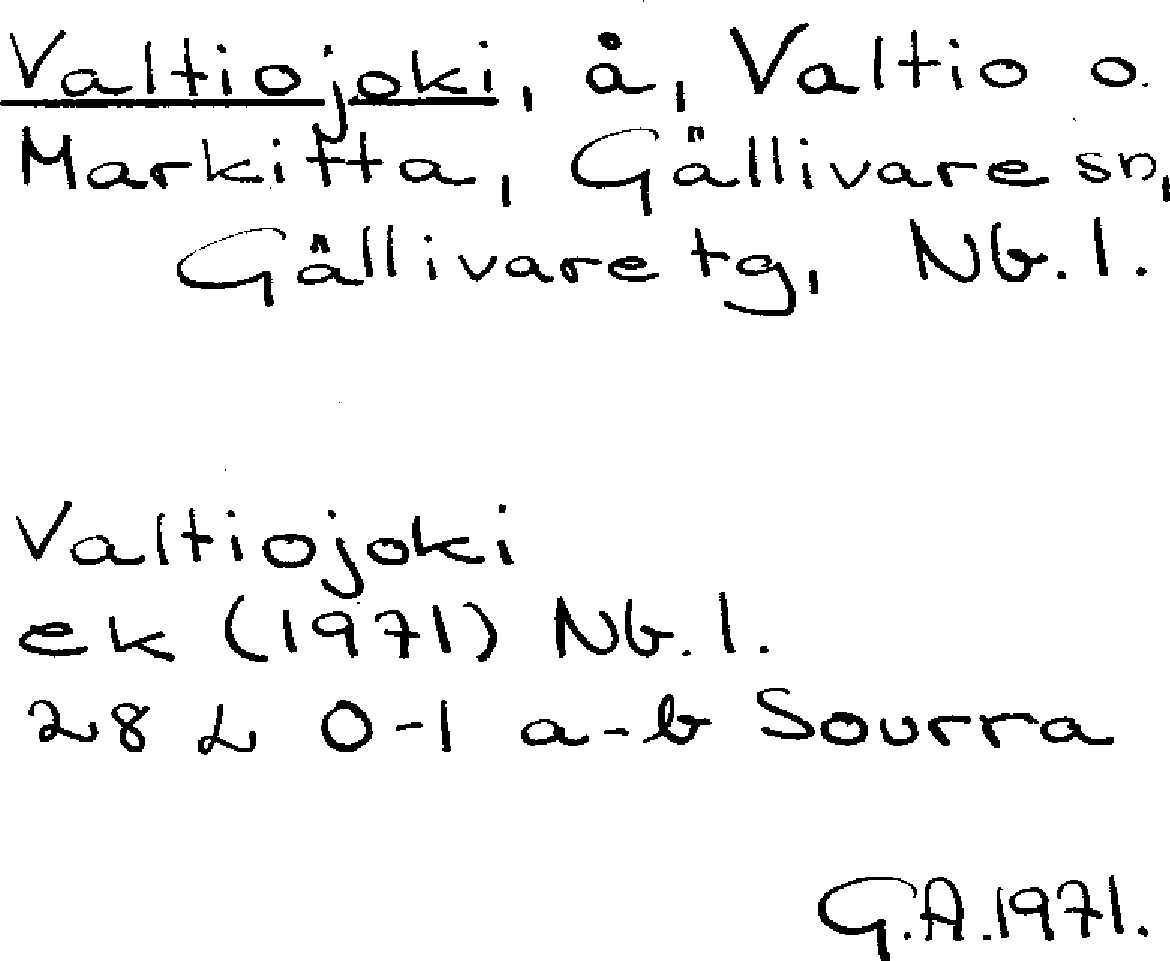 Valtiojoki, å, Valtio o.
Markitta, Gällivare sn,
Gällivare tg, Nb. l.
Valtiojoki
ek (1971) Nb. l.
28 L 0-1 a-b Sourra
G.A. 1971.